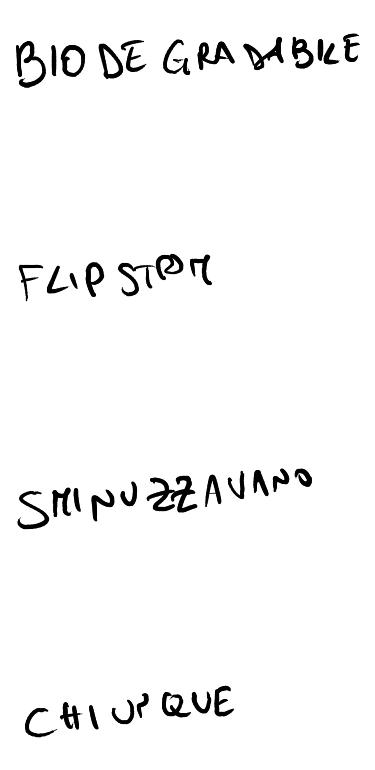 BIODEGRADABILE
SMINUZZAVANO
CHIUNQUE